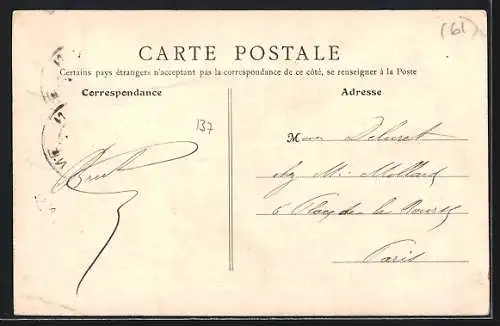 (61)
CARTE POSTALE
Certains pays étrangers n'acceptant pas la correspondance de ce côté, se renseigner à la Poste
Correspondance
Adresse
137
M
Chez Mr Mollard
6 Place de la
Paris